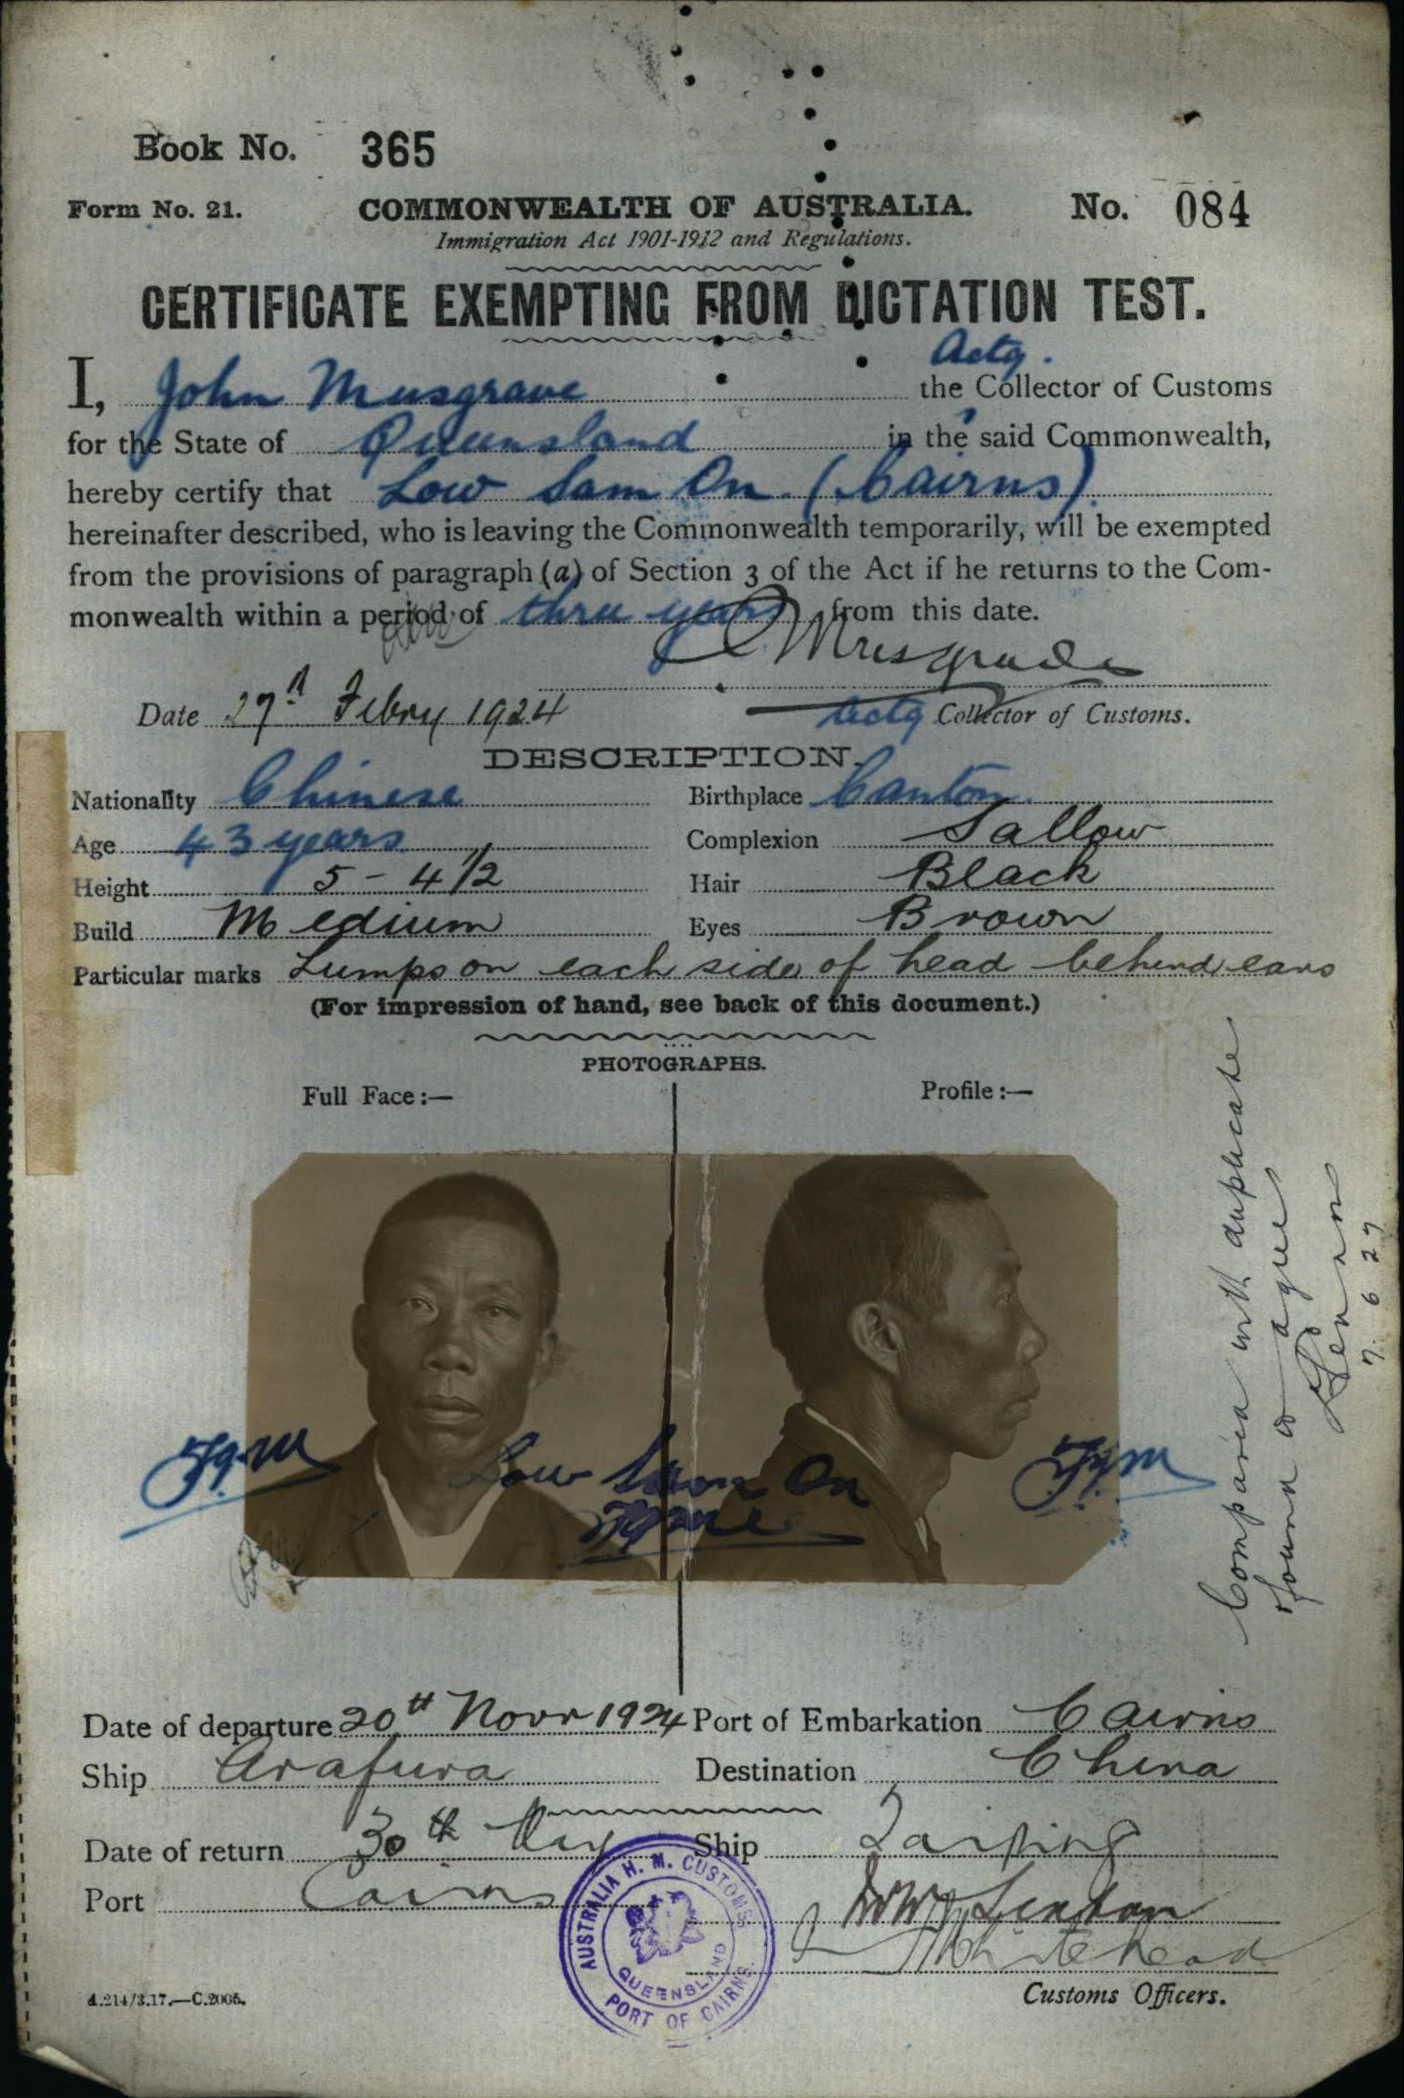 Book No. 365
Form No. 21. COMMONWEALTH OF AUSTRALIA. No. 084
Immigration Act 1901-1912 and Regulations.
CERTIFICATE EXEMPTING FROM DICTATION TEST.
Actg.
I, John Musgrave the Collector of Customs
for the State of Queensland in the said Commonwealth,
hereby certify that Low Sam On. (Cairns)
hereinafter described, who is leaving the Commonwealth temporarily, will be exempted
from the provisions of paragraph (a) of Section 3 of the Act if he returns to the Com-
monwealth within a period of three years from this date.
Musgrave
Date 27th Febry 1924 Actg Collector of Customs.
DESCRIPTION.
Nationality Chinese Birthplace Canton.
Age 43 years Complexion Sallow
Height 5 - 4 1/2 Hair Black
Build Medium Eyes Brown
Particular marks Lumps on each side of head behind ears
(For impression of hand, see back of this document.)
PHOTOGRAPHS.
Full Face:— Profile:—
Low Sam On
Compared with duplicate
found to agree
7. 6 27
Date of departure 20th Novr 1924 Port of Embarkation Cairns
Ship Arafura Destination China
Date of return 30th May Ship Taiping
Port Cairns
Whitehead
AUSTRALIA H. M. CUSTOMS.
QUEENSLAND
PORT OF CAIRNS.
Customs Officers.
A.214/3.17.—C.2005.